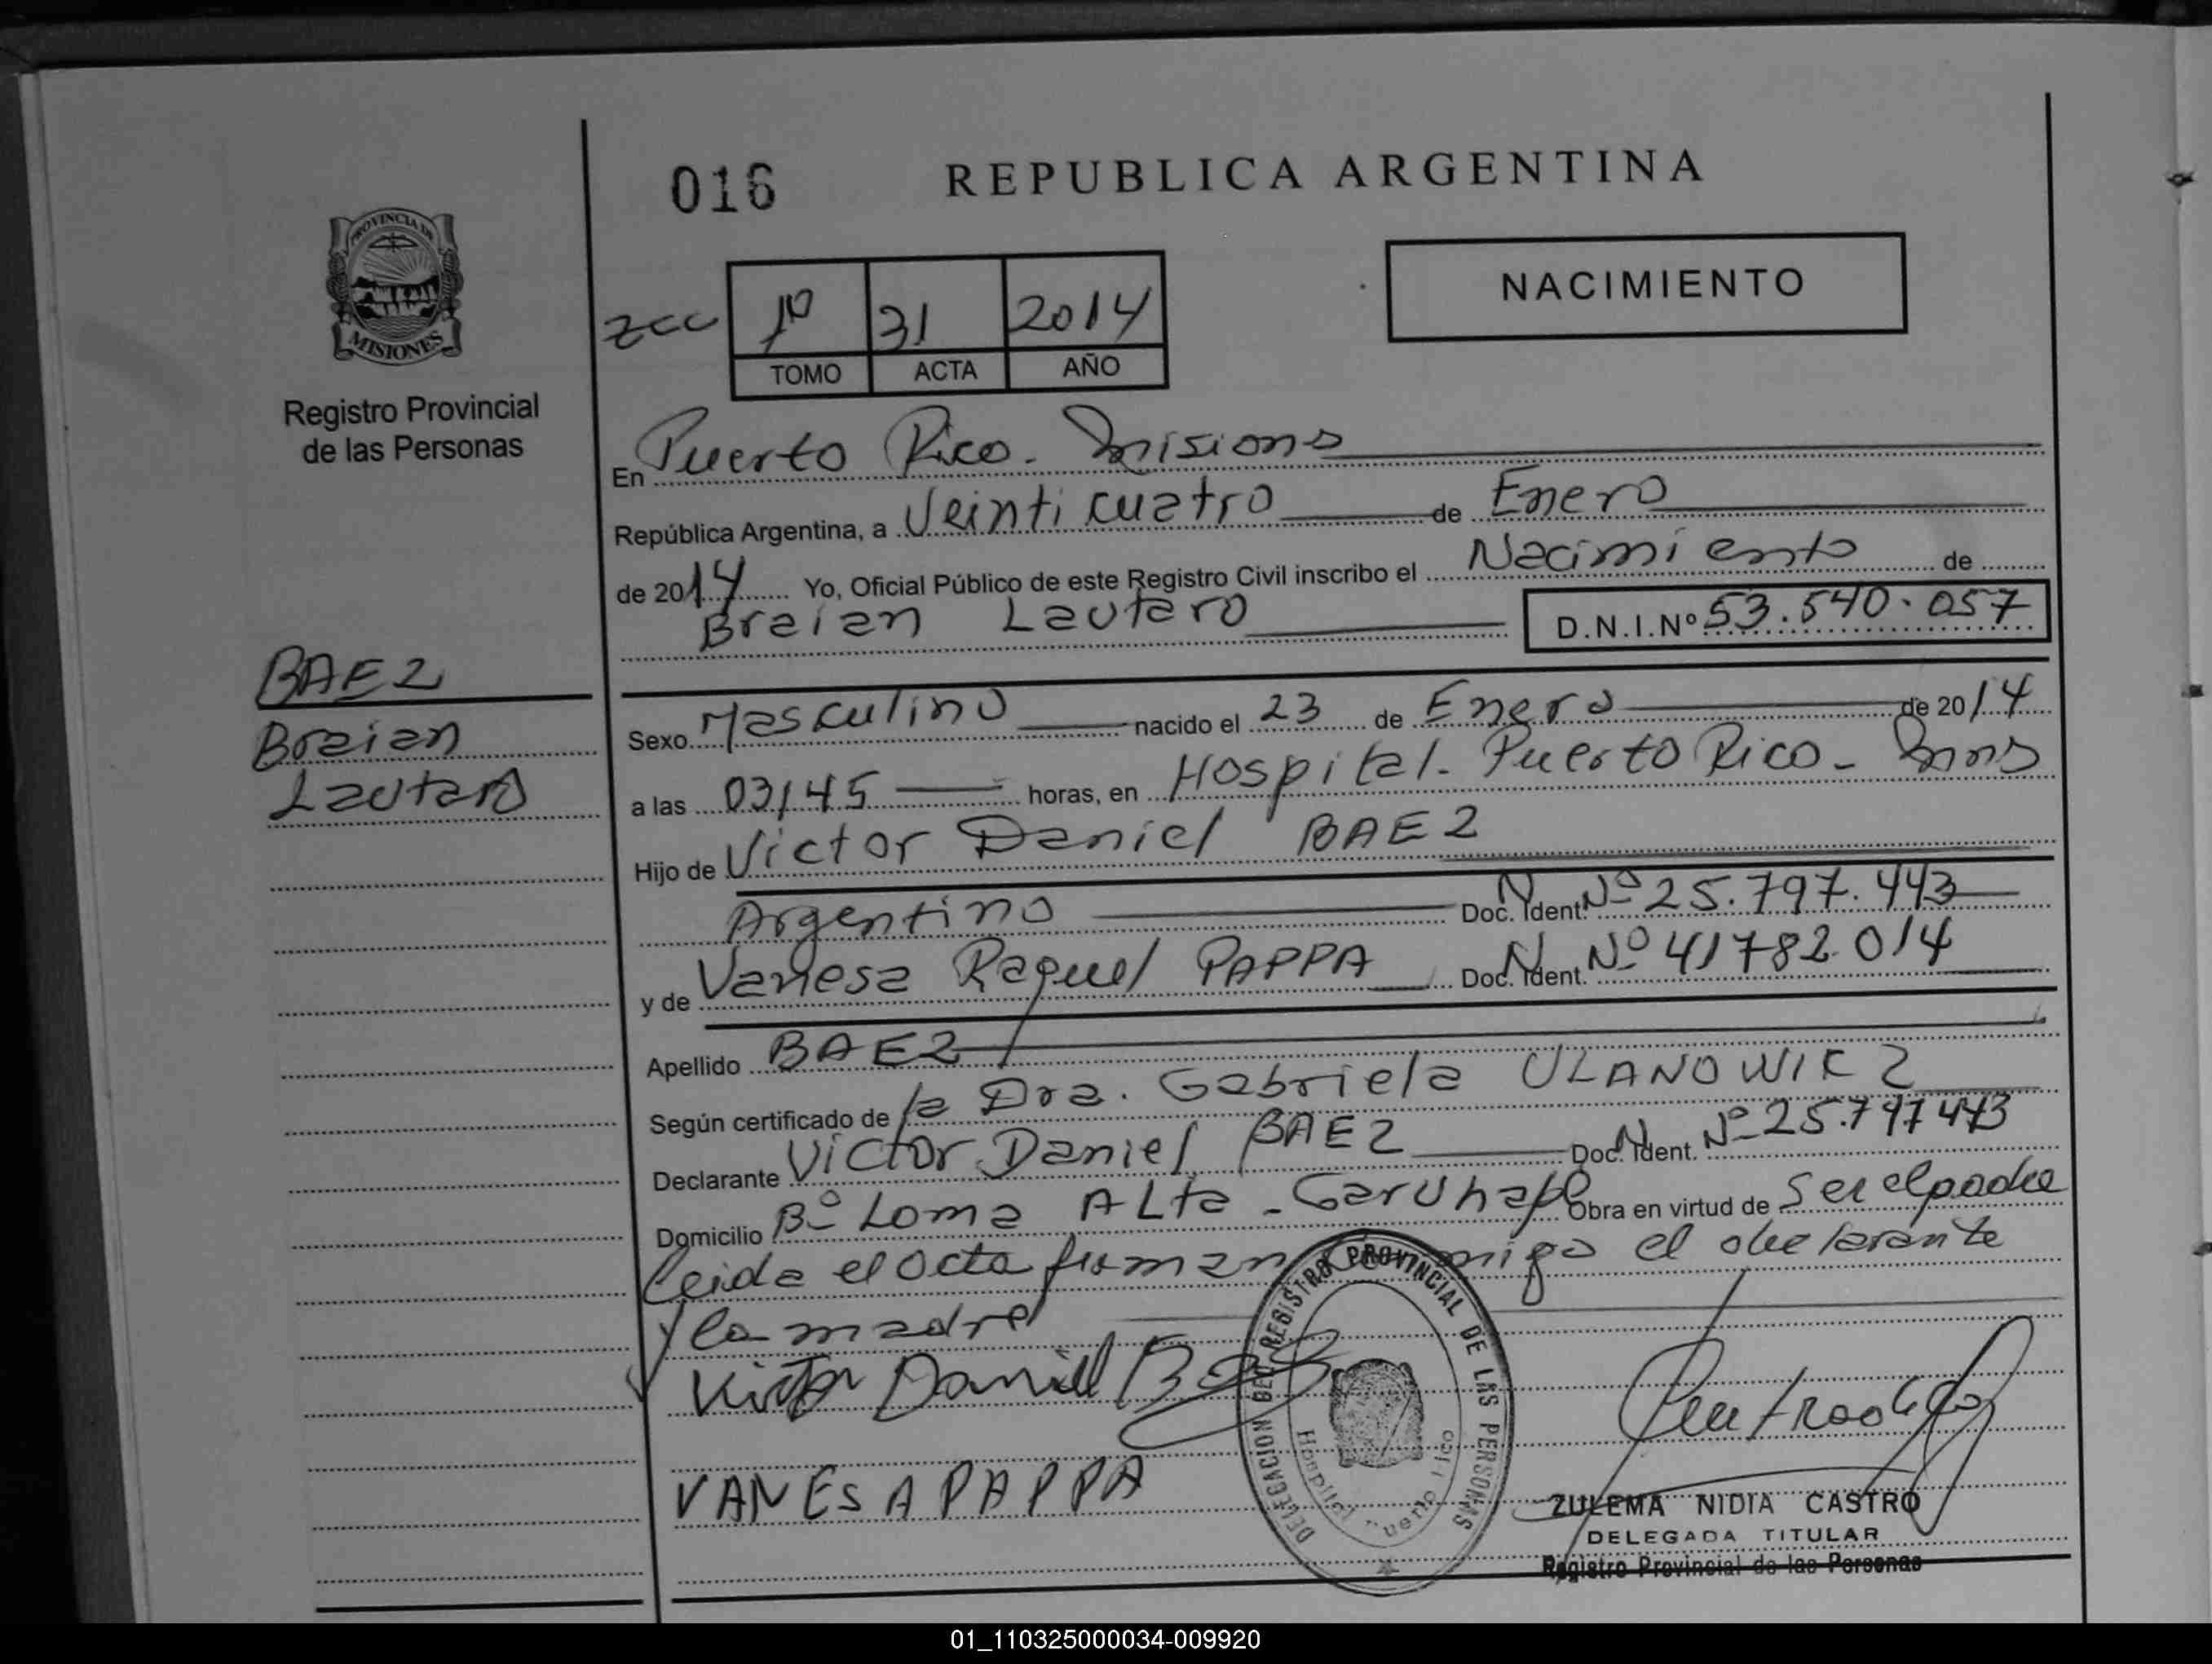 016
REPUBLICA ARGENTINA
PROVINCIA DE
MISIONES
Registro Provincial
de las Personas
NACIMIENTO
zcc 1º 31 2014
TOMO ACTA AÑO
En Puerto Rico. Misiones
República Argentina, a Veinticuatro de Enero
de 2014 Yo, Oficial Público de este Registro Civil inscribo el Nacimiento de
Braian Lautaro D.N.I.Nº 53.540.057
BAEZ
Braian
Lautaro
Sexo Masculino nacido el 23 de Enero de 2014
a las 03/45 horas, en Hospital. Puerto Rico - Mnes
Hijo de Victor Daniel BAEZ
Argentino Doc. N Ident. Nº 25.797.443
y de Vanesa Raquel PAPPA Doc. N Ident. Nº 41782.014
Apellido BAEZ
Según certificado de la Dra. Gabriela ULANOWICZ
Declarante Victor Daniel BAEZ Doc. N Ident. Nº 25.797443
Domicilio Bº Loma ALta - Garuhapé Obra en virtud de Ser el padre
Leida el acta firman conmigo el declarante
y la madre
Victor Daniel Baez
VANESA PAPPA
DELEGACION DEL REGISTRO PROVINCIAL DE LAS PERSONAS
Hospital Puerto Rico
ZULEMA NIDIA CASTRO
DELEGADA TITULAR
Registro Provincial de las Personas
01_110325000034-009920